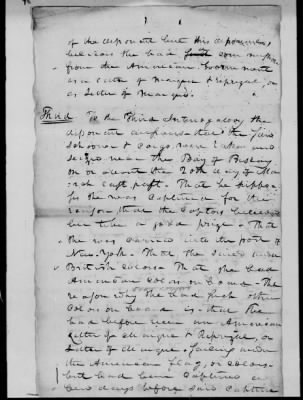 of the deponent but this deponent
believes she had some
from the American Government
as a Letter of Marque & Reprisal, or
as Letter of Marque.
Third To the Third Interrogatory the
deponent answers that the said
Schooner & Cargo were taken and
seized near the Bay of Biscay
on or about the 20th day of Ma-
rch last past. That he suppo-
ses she was Captured for the
reason that the Captors believed
her to be a good prize. That
she was carried into the port of
New-York. That she sailed under
British Colors. That she had
American Colors on board. That
reason why she had such other
Colors on board is that she
had before been an American
Letter of Marque & Reprisal, or
Letter of Marque, sailing under
the American flag, or colors
but had been Captured a
few days before said Capture